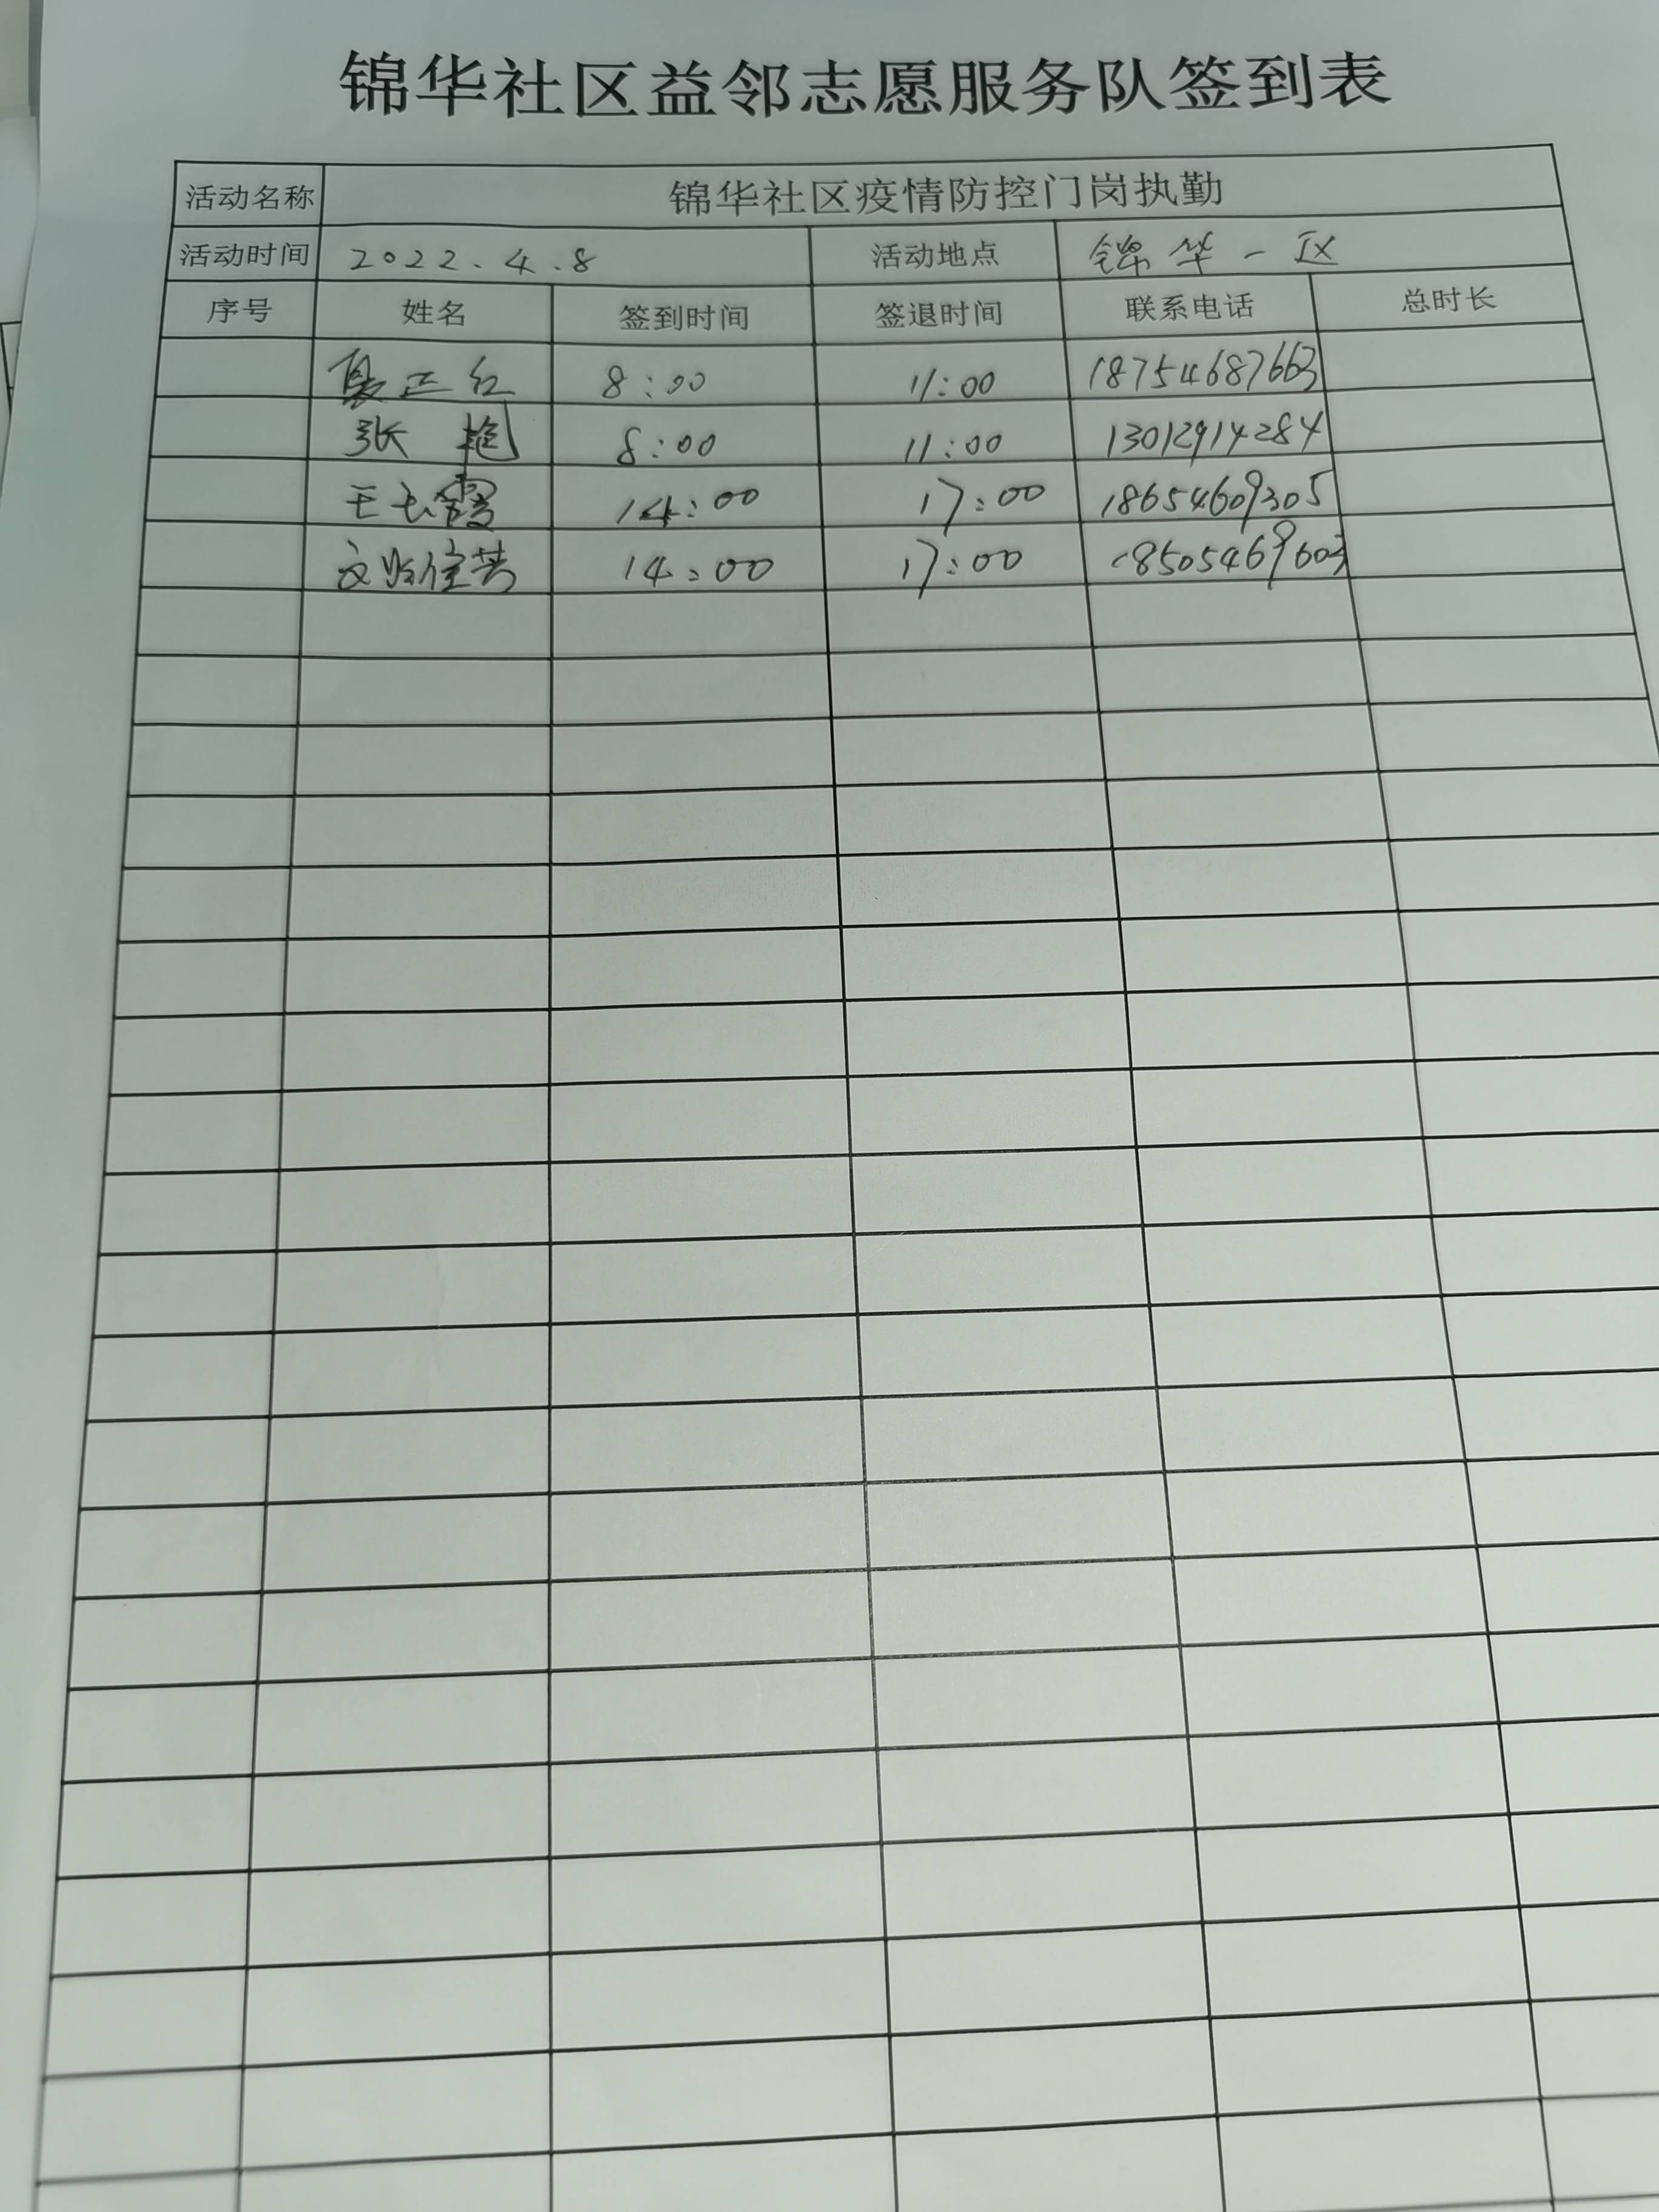 锦华社区益邻志愿服务队签到表
活动名称 锦华社区疫情防控门岗执勤
活动时间 2022.4.8 活动地点 锦华一区
序号 姓名 签到时间 签退时间 联系电话 总时长
正红 8:00 11:00 18754687663
张艳 8:00 11:00 13012914284
王玉霞 14:00 17:00 18654609305
14:00 17:00